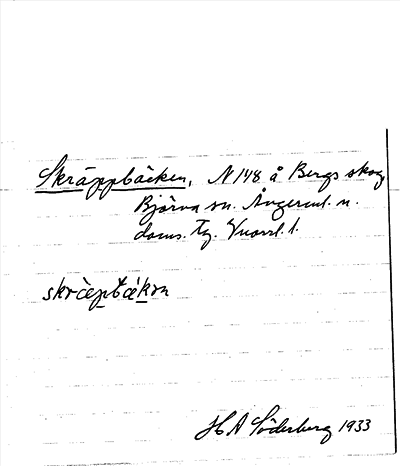 Skräppbäcken, N 148 å Bergs skog
Björna sn. Ångerml. n.
doms. Tg.
skræ̀pbækɔn
H A Söderberg 1933